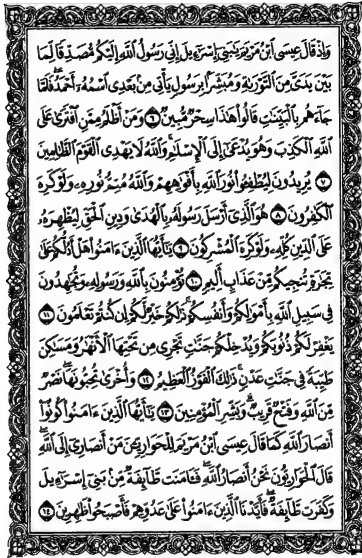 وَإِذْ قَالَ عِيسَى ابْنُ مَرْيَمَ يَٰبَنِىٓ إِسْرَٰٓءِيلَ إِنِّى رَسُولُ ٱللَّهِ إِلَيْكُم مُّصَدِّقًا لِّمَا
بَيْنَ يَدَىَّ مِنَ ٱلتَّوْرَىٰةِ وَمُبَشِّرًۢا بِرَسُولٍ يَأْتِى مِنۢ بَعْدِى ٱسْمُهُۥٓ أَحْمَدُ فَلَمَّا
جَآءَهُم بِٱلْبَيِّنَٰتِ قَالُوا۟ هَٰذَا سِحْرٌ مُّبِينٌ ٦ وَمَنْ أَظْلَمُ مِمَّنِ ٱفْتَرَىٰ عَلَى
ٱللَّهِ ٱلْكَذِبَ وَهُوَ يُدْعَىٰٓ إِلَى ٱلْإِسْلَٰمِ وَٱللَّهُ لَا يَهْدِى ٱلْقَوْمَ ٱلظَّٰلِمِينَ
٧ يُرِيدُونَ لِيُطْفِـُٔوا۟ نُورَ ٱللَّهِ بِأَفْوَٰهِهِمْ وَٱللَّهُ مُتِمُّ نُورِهِۦ وَلَوْ كَرِهَ
ٱلْكَٰفِرُونَ ٨ هُوَ ٱلَّذِىٓ أَرْسَلَ رَسُولَهُۥ بِٱلْهُدَىٰ وَدِينِ ٱلْحَقِّ لِيُظْهِرَهُۥ
عَلَى ٱلدِّينِ كُلِّهِۦ وَلَوْ كَرِهَ ٱلْمُشْرِكُونَ ٩ يَٰٓأَيُّهَا ٱلَّذِينَ ءَامَنُوا۟ هَلْ أَدُلُّكُمْ عَلَىٰ
تِجَٰرَةٍ تُنجِيكُم مِّنْ عَذَابٍ أَلِيمٍ ١٠ تُؤْمِنُونَ بِٱللَّهِ وَرَسُولِهِۦ وَتُجَٰهِدُونَ
فِى سَبِيلِ ٱللَّهِ بِأَمْوَٰلِكُمْ وَأَنفُسِكُمْ ذَٰلِكُمْ خَيْرٌ لَّكُمْ إِن كُنتُمْ تَعْلَمُونَ ١١
يَغْفِرْ لَكُمْ ذُنُوبَكُمْ وَيُدْخِلْكُمْ جَنَّٰتٍ تَجْرِى مِن تَحْتِهَا ٱلْأَنْهَٰرُ وَمَسَٰكِنَ
طَيِّبَةً فِى جَنَّٰتِ عَدْنٍ ذَٰلِكَ ٱلْفَوْزُ ٱلْعَظِيمُ ١٢ وَأُخْرَىٰ تُحِبُّونَهَا نَصْرٌ
مِّنَ ٱللَّهِ وَفَتْحٌ قَرِيبٌ وَبَشِّرِ ٱلْمُؤْمِنِينَ ١٣ يَٰٓأَيُّهَا ٱلَّذِينَ ءَامَنُوا۟ كُونُوٓا۟
أَنصَارَ ٱللَّهِ كَمَا قَالَ عِيسَى ٱبْنُ مَرْيَمَ لِلْحَوَارِيِّۦنَ مَنْ أَنصَارِىٓ إِلَى ٱللَّهِ
قَالَ ٱلْحَوَارِيُّونَ نَحْنُ أَنصَارُ ٱللَّهِ فَـَٔامَنَت طَّآئِفَةٌ مِّنۢ بَنِىٓ إِسْرَٰٓءِيلَ
وَكَفَرَت طَّآئِفَةٌ فَأَيَّدْنَا ٱلَّذِينَ ءَامَنُوا۟ عَلَىٰ عَدُوِّهِمْ فَأَصْبَحُوا۟ ظَٰهِرِينَ ١٤